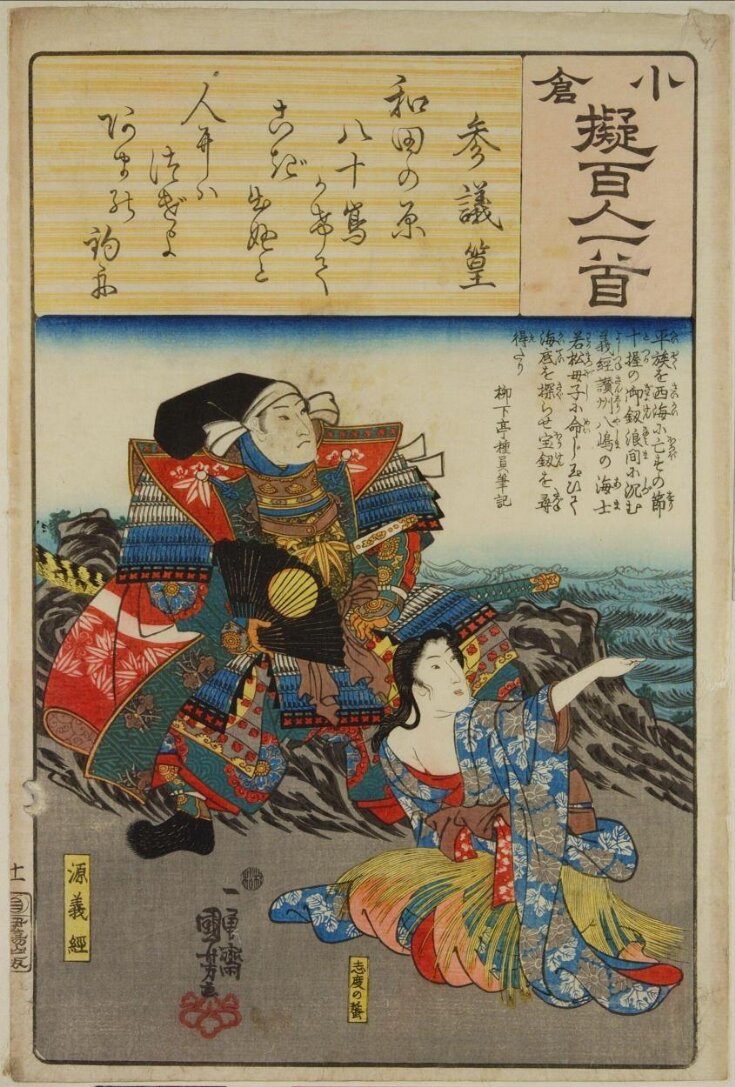 小倉
擬百人一首
参議篁
和田の原
八十嶌
かけて
こぎ出ぬと
人には
つげよ
あまの釣舟
平族を西海に亡すの節
十握の御釼浪間に沈む
義經讃州八嶋の海士
若松母子に命じ玉ひて
海底を探らせ宝釼を尋
得たり
柳下亭種員筆記
源義經
志度の蜑
一勇齋
國芳画
十一